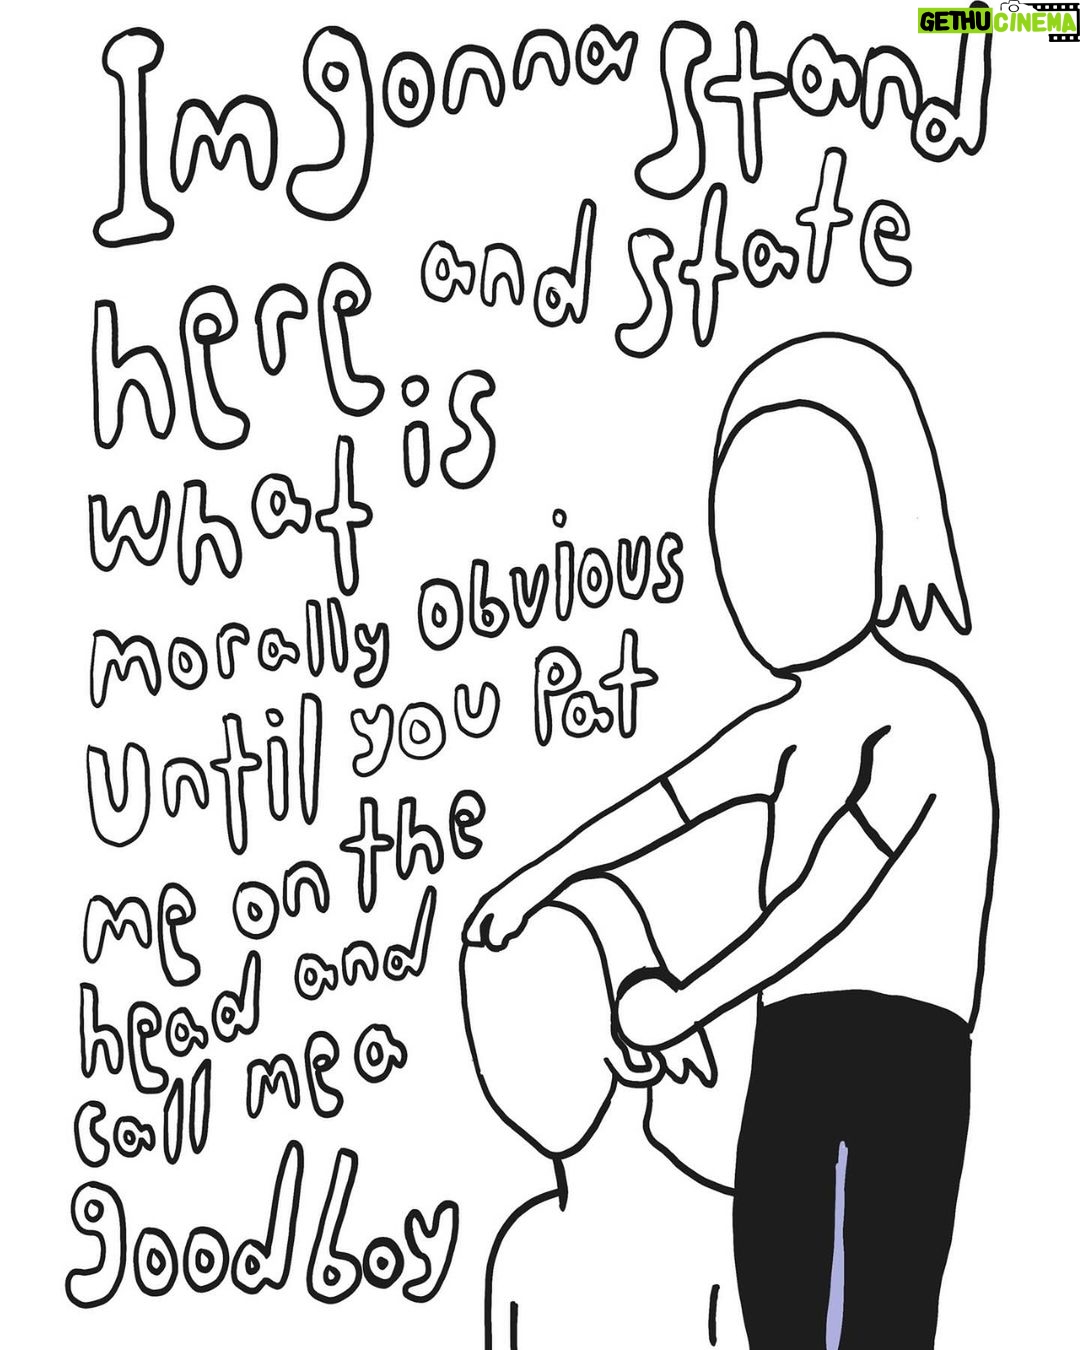 GETHUCINEMA
Im gonna stand
here and state
what is
morally obvious
until you pat
me on the
head and
call me a
good boy